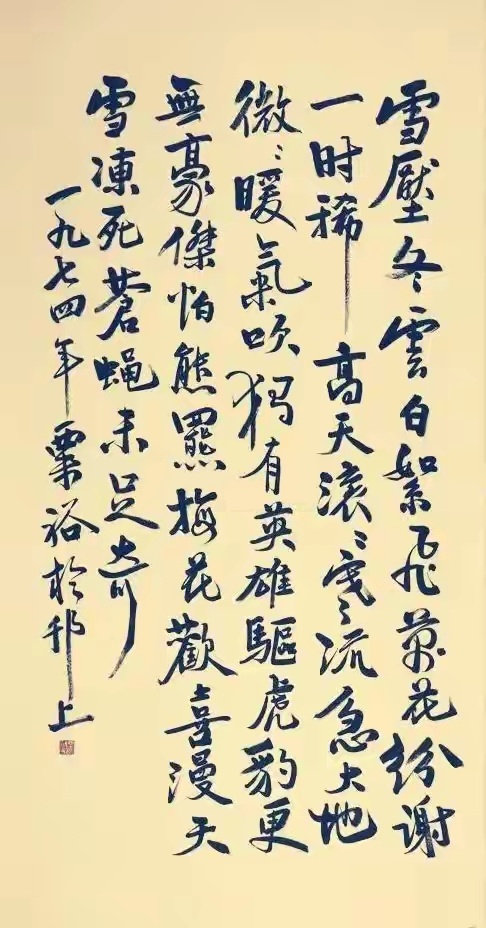 雪壓冬雲白絮飛萬花紛謝
一时稀高天滚〻寒流急大地
微〻暖氣吹獨有英雄驅虎豹更
無豪傑怕熊羆梅花歡喜漫天
雪凍死蒼蝇未足奇
一九七四年粟裕於邗上